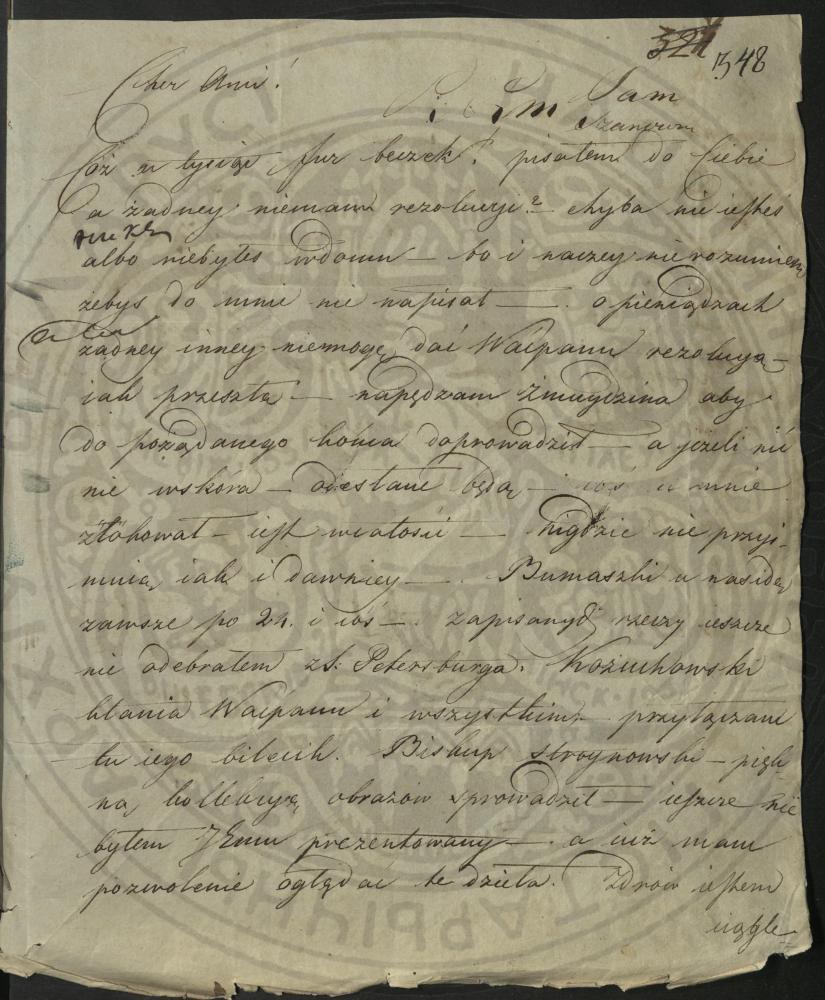 324 348
Cher Ami!
Sam
Szanown
Cóż u tysiąc fur beczek! pisałem do Ciebie
a żadney niemam rezolucyi? chyba nie iesteś
albo niebyłeś wdomu — bo i naczey nie rozumiem
żebyś do mnie nie napisał — . o pieniądzach
żadney inney niemogę dać Waćpanu rezolucyą —
iak przeszła — napędzam Żmugdzina aby
do pożądanego końca doprowadził — a jeżeli nic
nie wskóra — odesłane będą — coś u mnie
iest wcałości — nigdzie nie przyi-
muią iak i dawniey — . Bumaszki u nas idą
zawsze po 24. i coś — . zapisanych rzeczy ieszcze
nie odebrałem z St: Petersburga. Kożuchowski
kłania Waćpanu i wszystkim — przyłączam
tu iego bilecik. Biskup Stroynowski — pięk-
ną kollekcyą obrazów sprowadził — ieszcze nie
byłem JEmu prezentowany — . a iuż mam
pozwolenie oglądać te dzieła. Zdrów iestem
ciągle